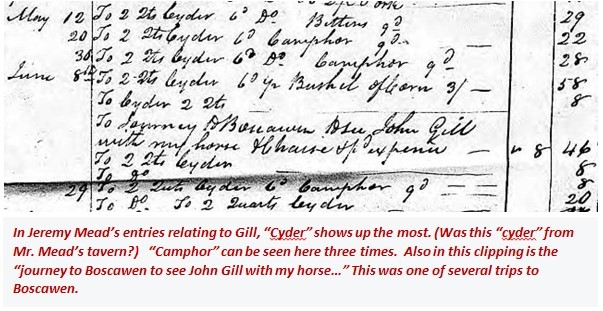 May 12 To 2 Qts Cyder 6d Do Bitters 9d 29
20 To 2 Qts Cyder 6d Camphor 9d — 22
30 To 2 Qts Cyder 6d Do Camphor 9d 28
June 8th To 2 Qts Cyder 6d Bushel of Corn 3/ — 58
To Cyder 2 Qts 8
To Journey to Boscawen to see John Gill
with my horse & Chaise & expence — 8 46
To 2 Qts Cyder 8
To do 8
29 To 2 Quts Cyder 6d Camphor 9d 20
To Do To 2 Quarts Cyder
In Jeremy Mead's entries relating to Gill, "Cyder" shows up the most. (Was this "cyder" from
Mr. Mead's tavern?) "Camphor" can be seen here three times. Also in this clipping is the
"journey to Boscawen to see John Gill with my horse…" This was one of several trips to
Boscawen.